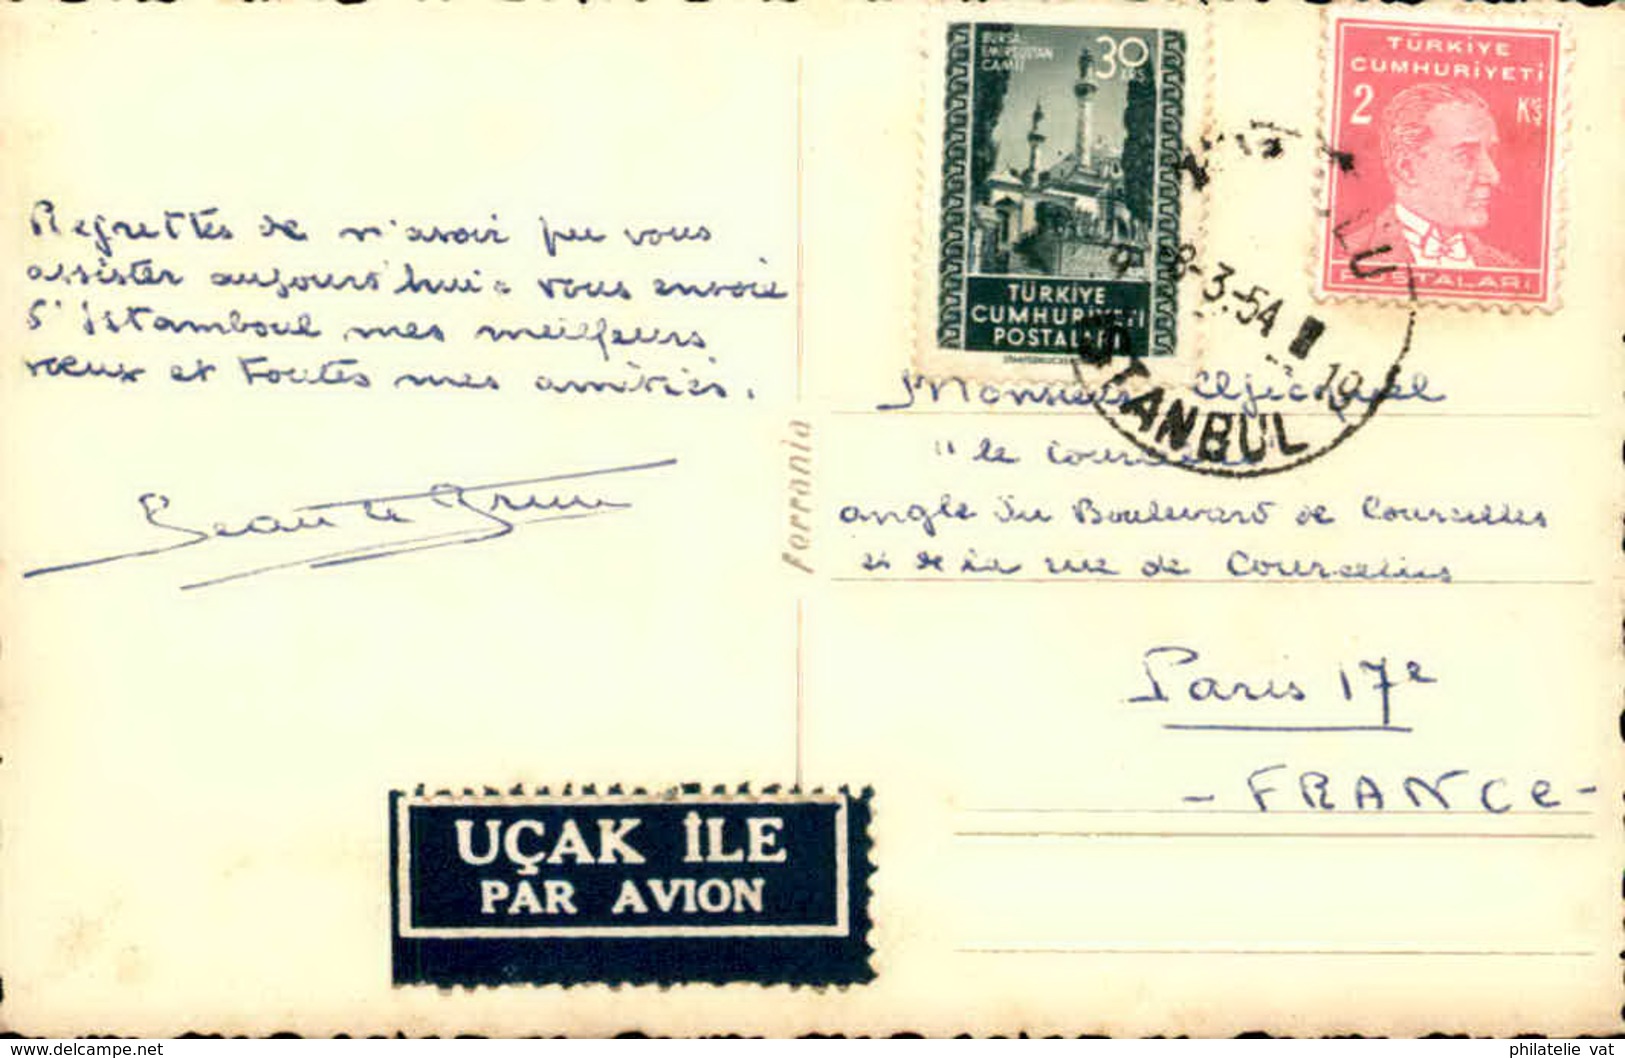 Regrettes de n'avoir pu vous
assister aujourd'hui = vous envoie
d'Istamboul mes meilleurs
vœux et toutes mes amitiés.
ferrania
UÇAK İLE
PAR AVION
BURSA
EMİRSULTAN
CAMİİ
30
KRŞ
TÜRKİYE
CUMHURİYETİ
POSTALARI
TÜRKİYE
CUMHURİYETİ
2 KŞ
POSTALARI
8-3-54
19
İSTANBUL
Monsieur
" le
angle du Boulevard de Courcelles
et de la rue de Courcelles
Paris 17e
- FRANCE -
delcampe.net
philatelie_vat